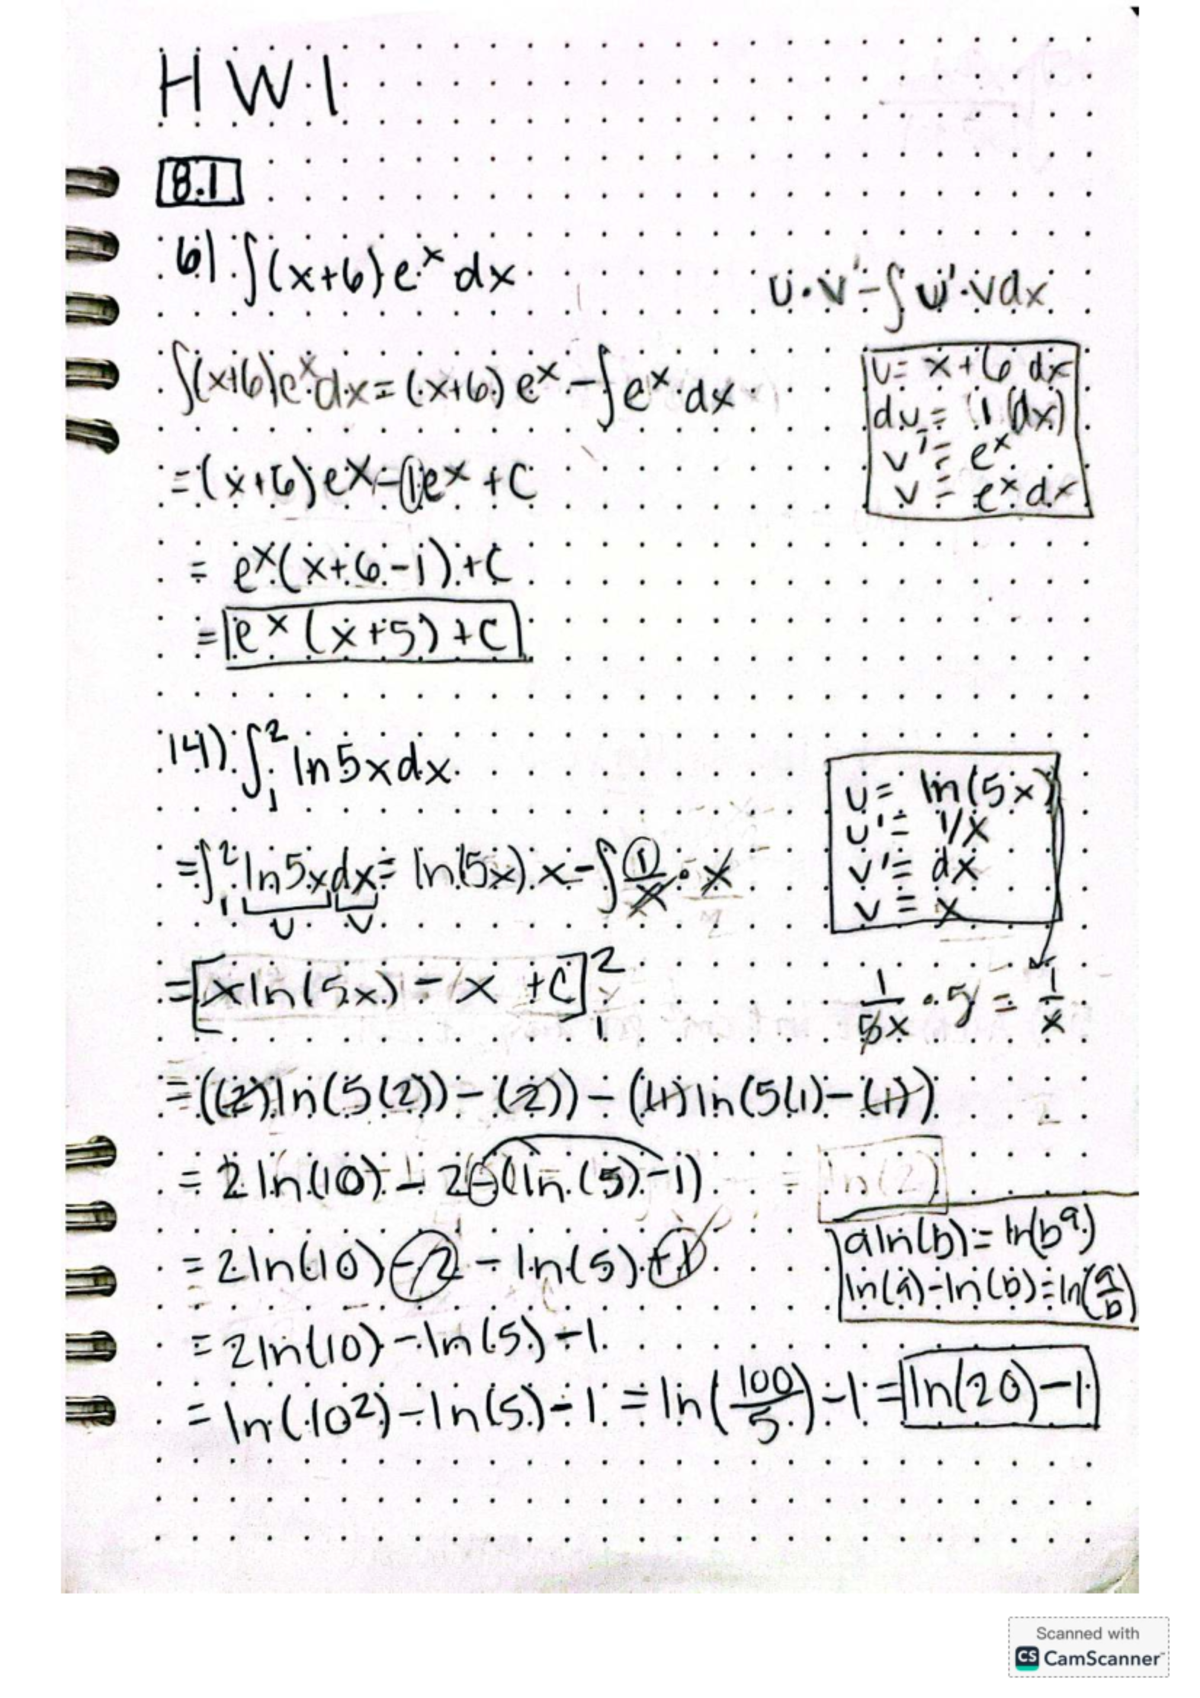 HW1
8.1
6) ∫(x+6)e^x dx
u·v'-∫u'·vdx
∫(x+6)e^x dx = (x+6)e^x - ∫e^x dx
u= x+6 dx
du = 1 (dx)
v' = e^x
v = e^x dx
= (x+6)e^x - 1e^x + C
= e^x(x+6-1)+C
= e^x(x+5)+C
14) ∫₁² ln5xdx
u= ln(5x)
u'= 1/x
v'= dx
v = x
= ∫₁² ln5xdx = ln(5x)·x - ∫ 1/x · x
u v
= [xln(5x) - x + C]₁²
1/5x · 5 = 1/x
= ((2)ln(5(2)) - (2)) - ((1)ln(5(1) - (1))
= 2ln(10) - 2 - (ln(5) - 1)
= ln(2)
aln(b) = ln(b^a)
ln(a)-ln(b) = ln(a/b)
= 2ln(10) - 2 - ln(5) + 1
= 2ln(10) - ln(5) - 1
= ln(10²) - ln(5) - 1 = ln(100/5) - 1 = ln(20) - 1
Scanned with
CS CamScanner